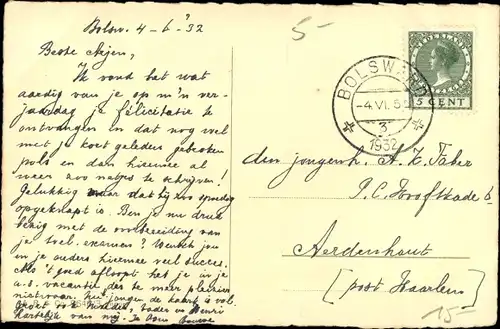 Bolsw. 4-6-'32
Beste Arjen,
Ik vond het wat
aardig van je op m'n ver-
jaardag je felicitatie te
ontvangen en dat nog wel
met je kort geleden gebroken
pols en dan hiermee al
weer zoo netjes te schrijven!
Gelukkig maar dat hij zoo spoedig
opgeknapt is. Ben je nu druk
bezig met de voorbereiding van
je toel. examen? Wensch jou
en je ouders hiermee veel succes.
Als 't goed afloopt heb je in je
a.s. vacantie des te meer plezier
nietwaar. Nu jongen de kaart is vol.
Groet ook moeder, vader en Henri
hartelijk van mij. Je Oom
5-
BOLSWARD
-4.VI.
3
1932
NEDERLAND
5 CENT
den jongenh. A. K. Faber
P.C. Hooftkade
Aerdenhout
(post Haarlem)
15-